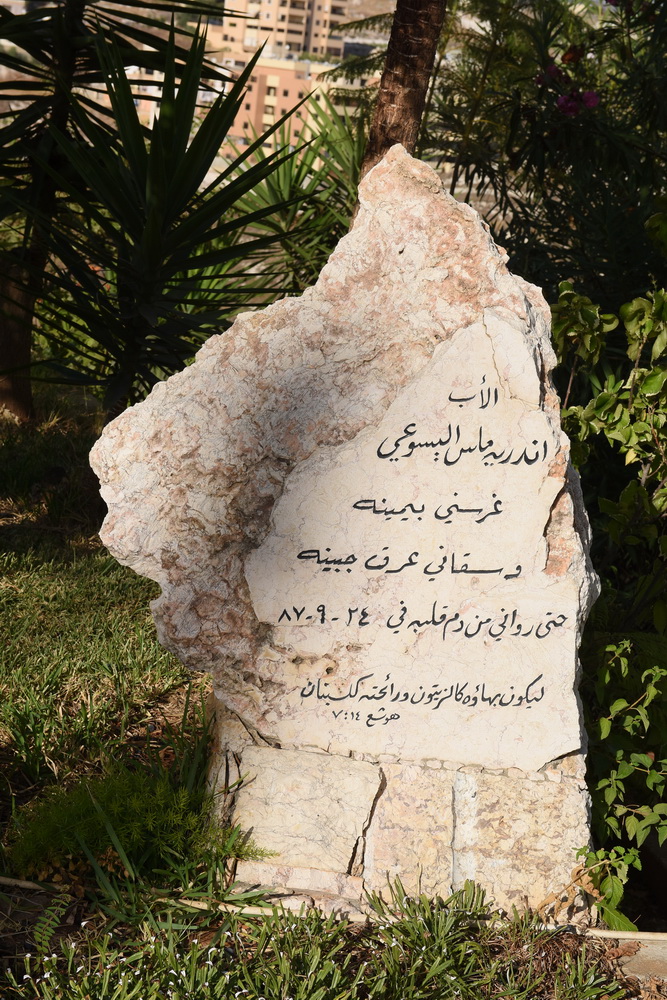 الأب
اندريه ماس اليسوعي
غرسني بيمينه
وسقاني عرق جبينه
حتى رواني من دم قلبه في ٢٤-٩-٨٧
ليكون بهاؤه كالزيتون ورائحته كلبنان
هوشع ٧:١٤